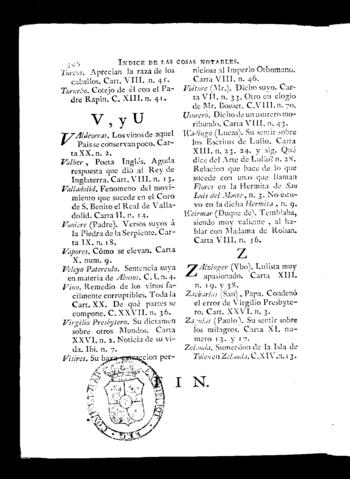 INDICE DE LAS COSAS NOTABLES.
Turcos. Aprecian la raza de los
caballos. Cart. VIII. n. 45.
Turnebo. Cotejo de él con el Pa-
dre Rapin. C. XIII. n. 41.
V, y U
Valdeorras. Los vinos de aquel
Pais se conservan poco. Car-
ta XX. n. 2.
Valher, Poeta Inglés. Aguda
respuesta que dió al Rey de
Inglaterra. Cart. VIII. n. 13.
Valladolid. Fenomeno del movi-
miento que sucede en el Coro
de S. Benito el Real de Valla-
dolid. Carta II. n. 14.
Vaniere (Padre). Versos suyos á
la Piedra de la Serpiente. Car-
ta IX. n. 18.
Vapores. Cómo se elevan. Carta
X. num. 9.
Veleyo Paterculo. Sentencia suya
en materia de Abusos. C. I. n. 4.
Vino. Remedio de los vinos fa-
cilmente corruptibles. Toda la
Cart. XX. De qué partes se
compone. C. XXVII. n. 36.
Virgilio Presbytero. Su dictamen
sobre otros Mundos. Carta
XXVI. n. 2. Noticia de su vi-
da. Ibi. n. 7.
Visires. Su baxa extraccion per-
niciosa al Imperio Othomano.
Carta VIII. n. 46.
Voiture (Mr.). Dicho suyo. Car-
ta VII. n. 33. Otro en elogio
de Mr. Bosuet. C. VIII. n. 70.
Usurero. Dicho de un usurero mo-
ribundo. Carta VIII. n. 43.
Wadingo (Lucas). Su sentir sobre
los Escritos de Lulio. Carta
XIII. n. 23. 24. y sig. Qué
dice del Arte de Lulio? n. 28.
Relacion que hace de lo que
sucede con unas que llaman
Flores en la Hermita de San
Luis del Monte, n. 3. No estu-
vo en la dicha Hermita, n. 9.
Weirmar (Duque de). Temblaba,
siendo muy valiente, al ha-
blar con Madama de Rohan.
Carta VIII. n. 56.
Z
Zalzinger (Ybo). Lulista muy
apasionado. Carta XIII.
n. 19. y 38.
Zacharías (San), Papa. Condenó
el error de Virgilio Presbyte-
ro. Cart. XXVI. n. 3.
(Paulo). Su sentir sobre
los milagros. Carta XI. nu-
mero 13. y 17.
Zelanda. Sumersion de la Isla de
Tolen en Zelanda. C. XIV. n. 13.
FIN.